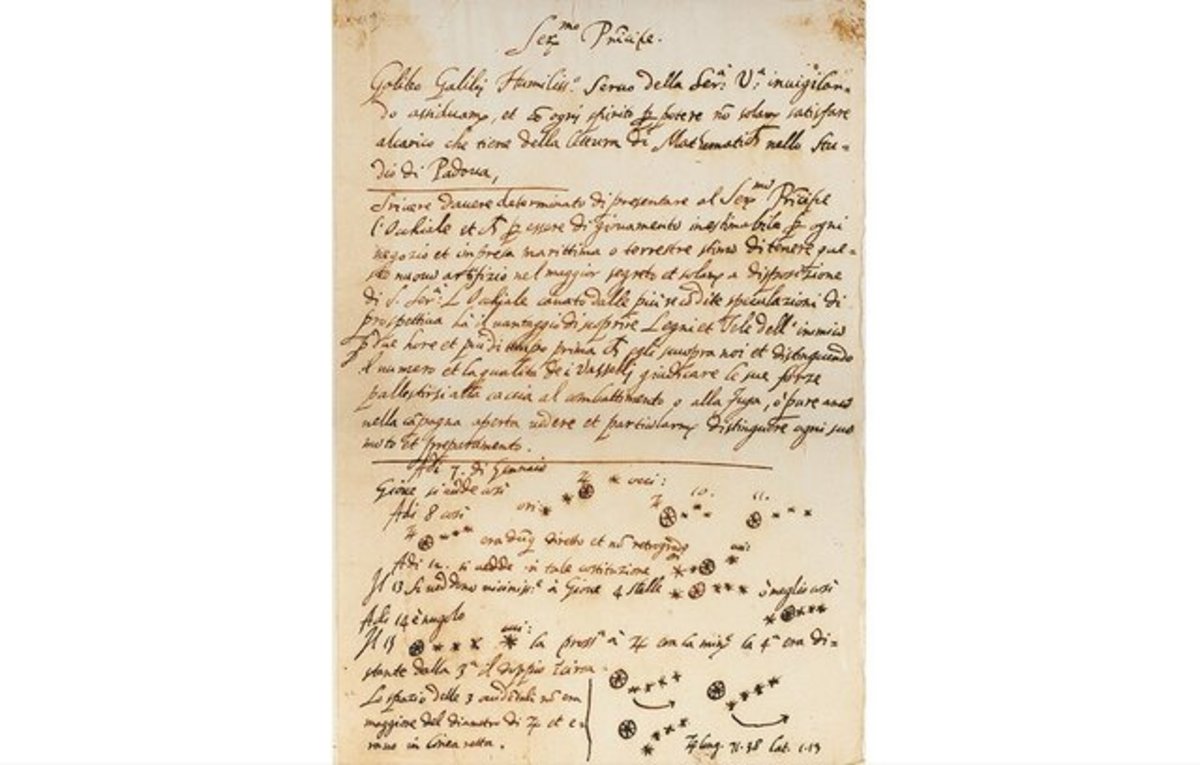 Ser.mo Principe.
Galileo Galilej Humiliss.o Seruo della Ser.a V.a inuigilan-
do assiduam.e, et co ogni spirito p potere no solam.e satisfare
alcarico che tiene della lettura di Mathematica nello Stu-
dio di Padoua,
Scriuere dauere determinato di presentare al Ser.mo Principe
l'Occhiale et p essere di giouamento inestimabile p ogni
negozio et impresa marittima o terrestre stimo di tenere que-
sto nuouo artifizio nel maggior segreto et solam.e a disposizione
di S. Ser.a L'Occhiale cauato dalle piu recodite speculazioni di
prospettiua ha il uantaggio di scoprire Legni et Vele dell'inimico
p due hore et piu di tempo prima egli scuopra noi et distinguendo
il numero et la qualita de i Vasselli giudicare le sue forze
pallestirsi alla caccia al combattimento o alla fuga, o pure anco
nella capagna aperta uedere et particolarm.e distinguere ogni suo
moto et preparamento.
Adi 7. di Gennaio
Gioue si uedde cosi occ:
Adi 8 cosi ori: 10. 11.
era diretto et no retrogrado
Adi 12. si uedde in tale costituzione occ:
Il 13 si ueddono uiciniss.e à Gioue 4 stelle ò meglio cosi
Adi 14 è nugolo
Il 15 occ: la pross.a à ♃ era la min.e la 4.a era di-
stante dalla 3.a il doppio circa.
Lo spazio delle 3 occidentali no era
maggiore del diametro di ♃ et e-
rano in linea retta.
♃ long. 71.38 Lat. 1.13